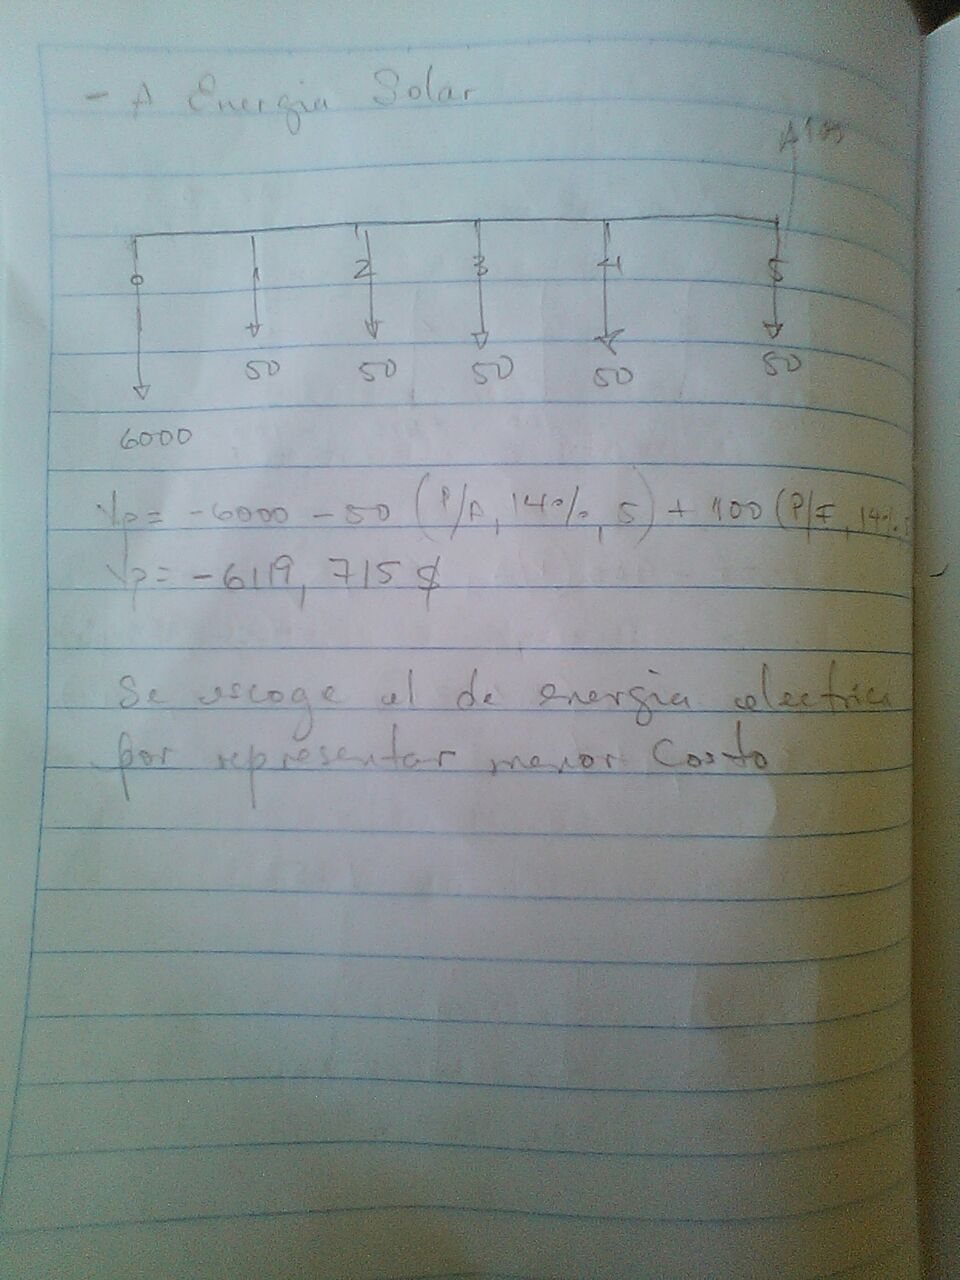 - A Energia Solar
100
0 1 2 3 4 5
50 50 50 50 50
6000
Vp = -6000 - 50 (P/A, 14%, 5) + 100 (P/F, 14%, 5
Vp = -6119,715 $
Se escoge el de energia electrica
por representar menor Costo